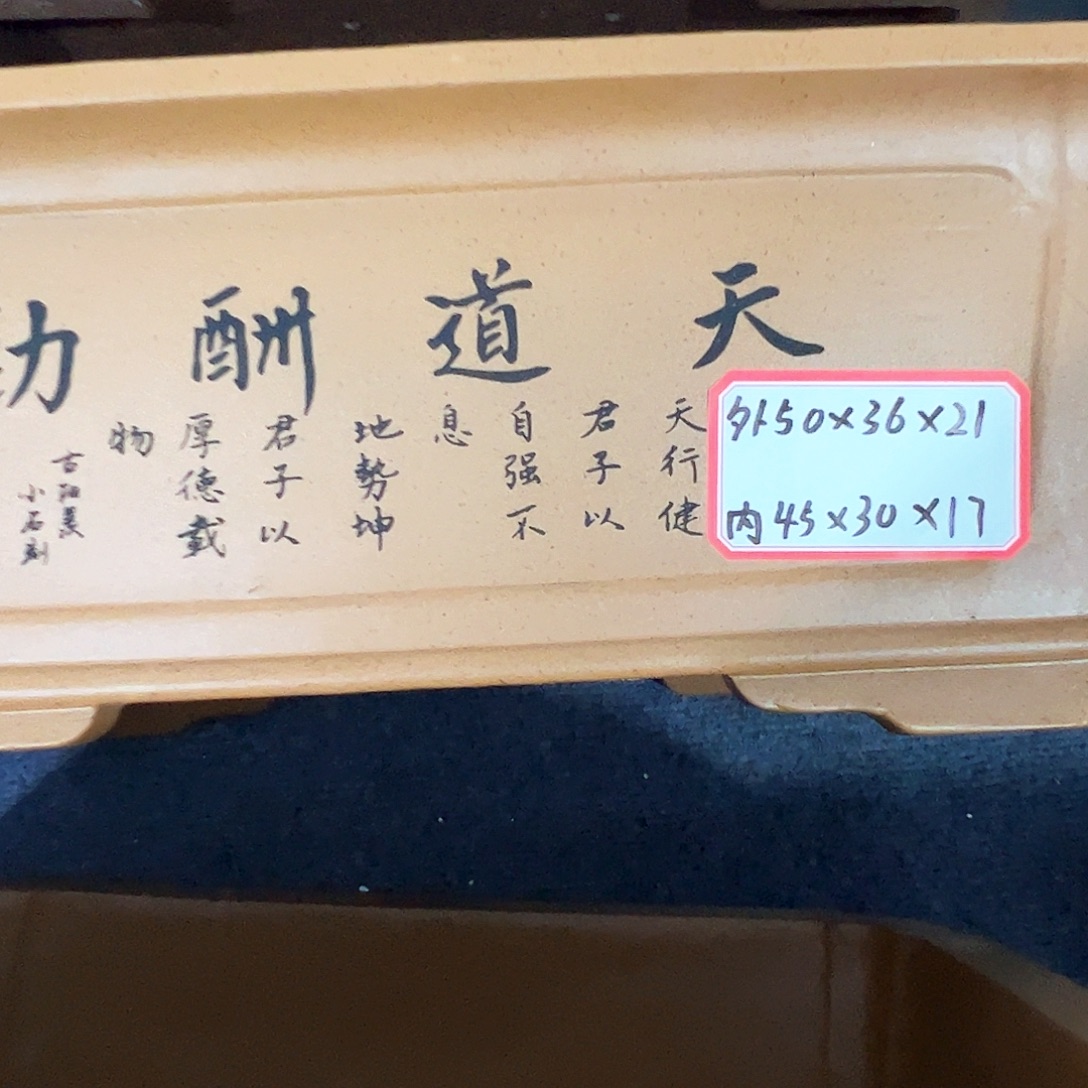 天道酬勤
天行健
君子以
自强不
息
地势坤
君子以
厚德载
物
小石刻
外50×36×21
内45×30×17